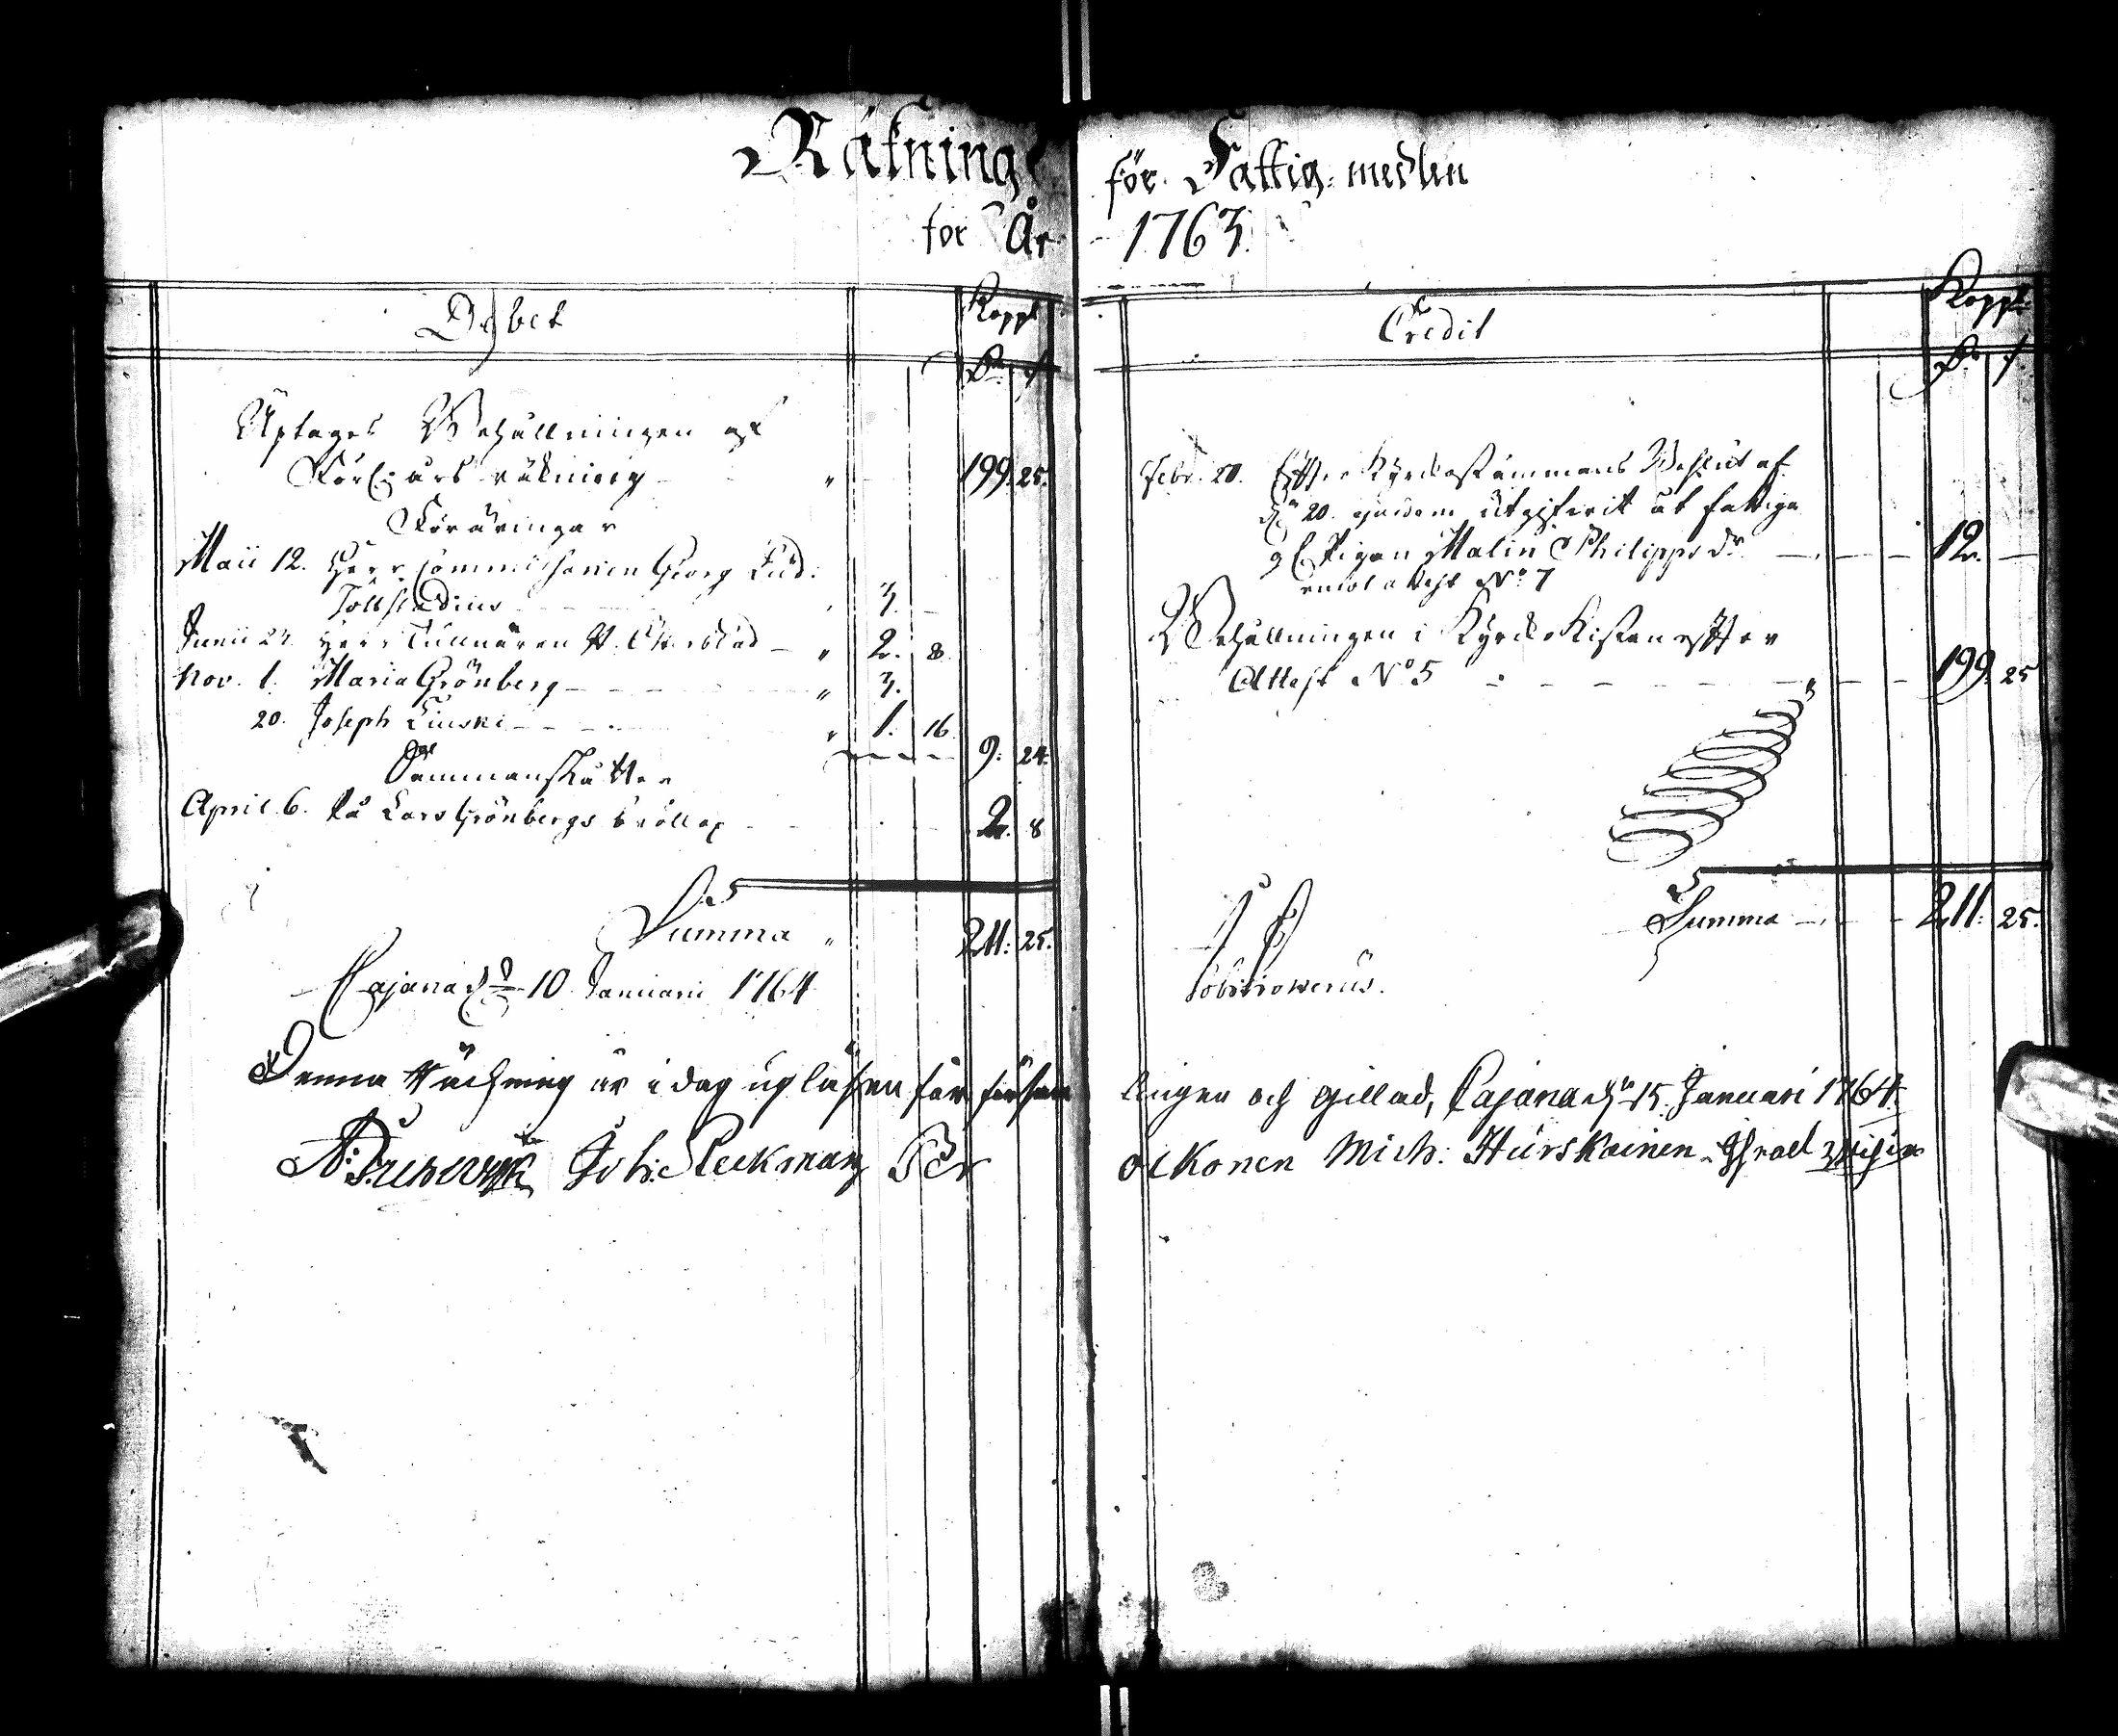 Räkning för Fattig-medlen
för År 1763.
Debet
Koppt
Dr. /.
Uptages Behållningen af
Förl: års räkning " 199. 25.
Föräringar
Maii 12. Herr Commissarien Georg Lud:
3. –
Junii 27. Herr Tullnären " 2. 8.
Nov. 1. Maria Grönberg " 3.
20. Joseph " 1. 16.
9: 24.
Sammanskätter
April. 6. På Lars Grönbergs bröllop 2. 8
Summa " 211: 25.
Cajana d. 10 Januarii 1764
Credit
Koppt.
Dr. /.
Febr. 20. Efter Kyrkostämmans Beslut af
dn 20. ejusdem utgifvit åt fattiga
Pigan Malin Philipps dr. 12. —
attest No 7
Behållningen i Kyrko Kistan efter
Attest No 5 " 199. 25
Summa 211. 25.
Denna Räckning är i dag upläsen för församlingen och gillad, Cajana dn 15. Januari 1764.
Joh: Bleckman Per Olkonen Mich: Hurskainen Israel